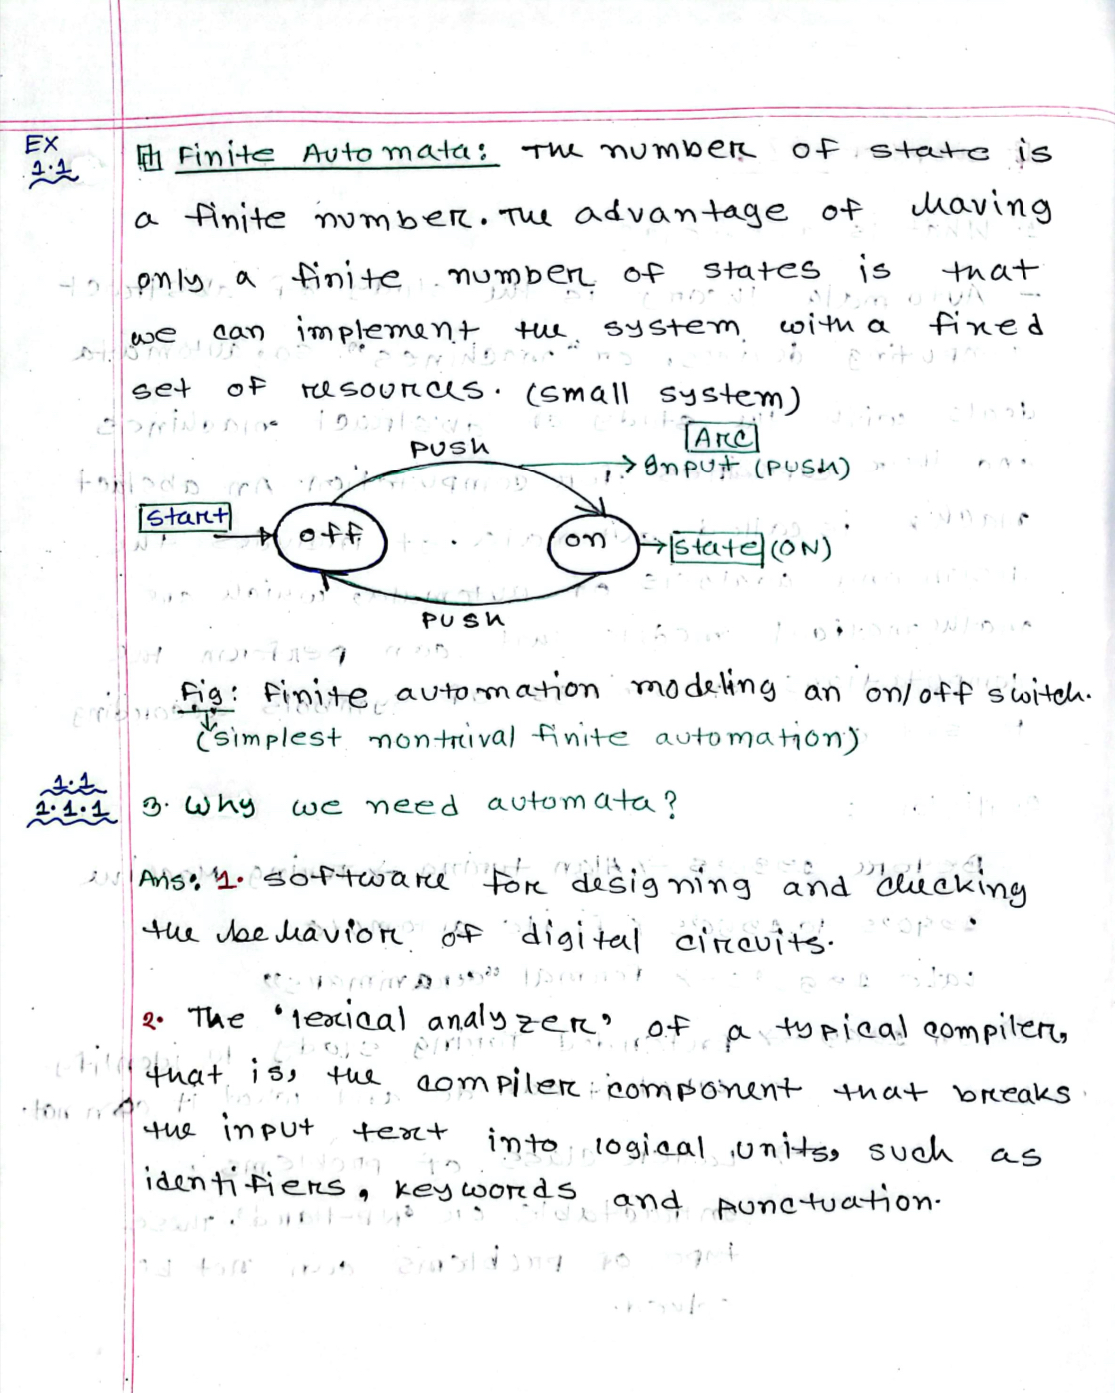 EX
1.1
Finite Automata: The number of state is
a finite number. The advantage of having
only a finite number of states is that
we can implement the system with a fixed
set of resources. (small system)
PUSH
Arc
Input (PUSH)
Start
off
on
State (ON)
PUSH
Fig: Finite automation modeling an on/off switch.
(simplest nontrival finite automation)
1.1
1.1.1
3. Why we need automata?
Ans: 1. Software for designing and checking
the behavior of digital circuits.
2. The 'lexical analyzer' of a typical compiler,
that is, the compiler component that breaks
the input text into logical units, such as
identifiers, keywords and punctuation.